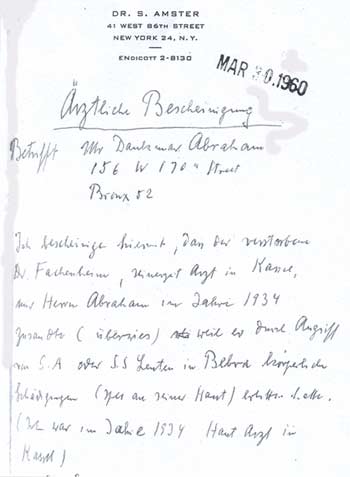 DR. S. AMSTER
41 WEST 86TH STREET
NEW YORK 24, N. Y.
ENDICOTT 2-8130
MAR 30 1960
Ärztliche Bescheinigung
Betrifft Mr Dankmar Abraham
156 W 170th Street
Bronx 52
Ich bescheinige hiermit, dass der verstorbene
Dr. Fackenheim, seinerzeit Arzt in Kassel,
mir Herrn Abraham im Jahre 1934
zusandte (überwies) weil er durch Angriff
von S.A oder SS Leuten in Bebra körperliche
Schädigungen (spez an seiner Haut) erlitten hatte.
(Ich war im Jahre 1934 Haut Arzt in
Kassel)